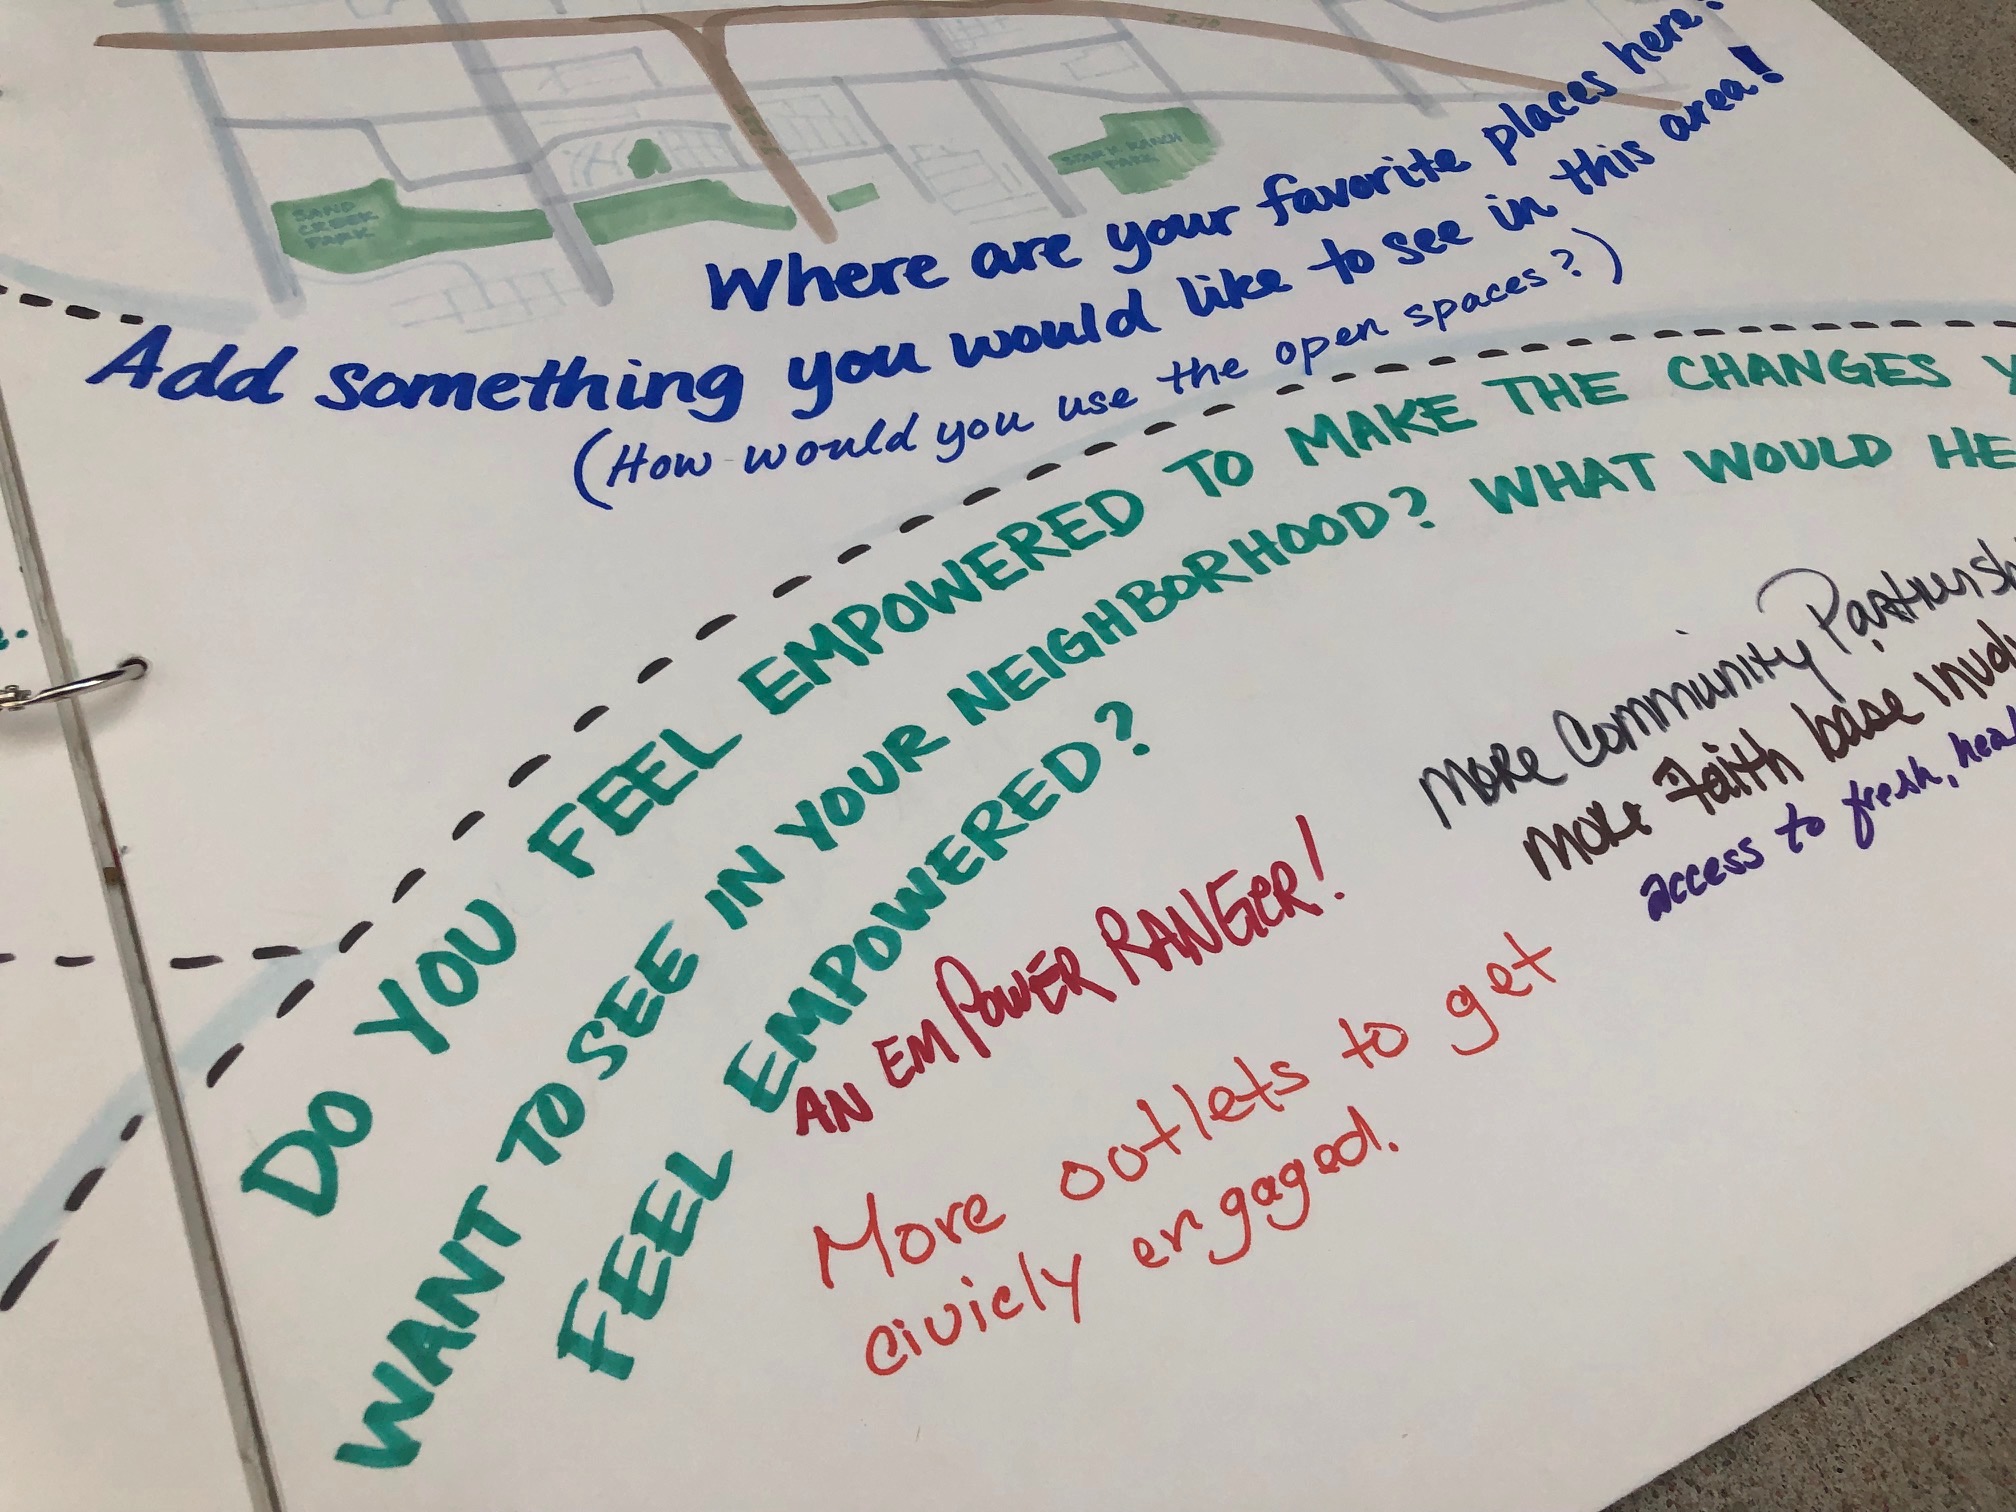 I-70
SAND
CREEK
PARK
STARK RANCH
PARK
Where are your favorite places here?
Add something you would like to see in this area!
(How would you use the open spaces?)
DO YOU FEEL EMPOWERED TO MAKE THE CHANGES Y
WANT TO SEE IN YOUR NEIGHBORHOOD? WHAT WOULD HE
FEEL EMPOWERED?
AN EMPOWER RANGER!
More Community Partnersh
More Faith base invol
access to fresh, hea
More outlets to get
civicly engaged.